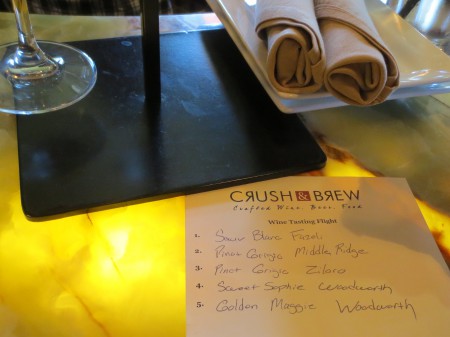 CRUSH & BREW
Crafted Wine. Beer. Food
Wine Tasting Flight
1. Sauv Blanc Fazeli
2. Pinot Grigio Middle Ridge
3. Pinot Grigio
4. Sweet Sophie Woodworth
5. Golden Maggie Woodworth